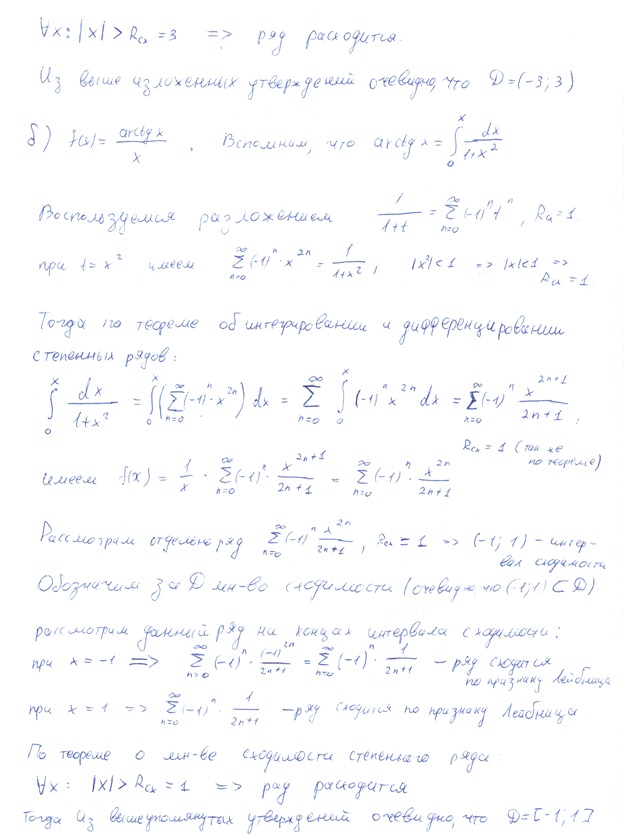 ∀x: |x| > Rсх = 3 => ряд расходится.
Из выше изложенных утверждений очевидно, что D = (-3; 3)
б) f(x) = arctg x / x . Вспомним, что arctg x = ∫₀ˣ dx / (1+x²)
Воспользуемся разложением 1/(1+t) = ∑_{n=0}^{∞} (-1)ⁿ tⁿ , Rсх = 1.
при t = x² имеем ∑_{n=0}^{∞} (-1)ⁿ · x²ⁿ = 1/(1+x²) , |x²| < 1 => |x| < 1 =>
Rсх = 1
Тогда по теореме об интегрировании и дифференцировании
степенных рядов:
∫₀ˣ dx/(1+x²) = ∫₀ˣ (∑_{n=0}^{∞} (-1)ⁿ · x²ⁿ) dx = ∑_{n=0}^{∞} ∫₀ˣ (-1)ⁿ x²ⁿ dx = ∑_{n=0}^{∞} (-1)ⁿ x²ⁿ⁺¹/(2n+1) ,
Rсх = 1 (так же
по теореме)
имеем f(x) = 1/x · ∑_{n=0}^{∞} (-1)ⁿ · x²ⁿ⁺¹/(2n+1) = ∑_{n=0}^{∞} (-1)ⁿ · x²ⁿ/(2n+1)
Рассмотрим отдельно ряд ∑_{n=0}^{∞} (-1)ⁿ x²ⁿ/(2n+1) , Rсх = 1 => (-1; 1) - интер-
вал сходимости
Обозначим за D мн-во сходимости (очевидно что (-1;1) ⊂ D)
рассмотрим данный ряд на концах интервала сходимости:
при x = -1 => ∑_{n=0}^{∞} (-1)ⁿ · (-1)²ⁿ/(2n+1) = ∑_{n=0}^{∞} (-1)ⁿ · 1/(2n+1) - ряд сходится
по признаку Лейбница
при x = 1 => ∑_{n=0}^{∞} (-1)ⁿ · 1/(2n+1) - ряд сходится по признаку Лейбница
По теореме о мн-ве сходимости степенного ряда:
∀x: |x| > Rсх = 1 => ряд расходится
Тогда из вышеупомянутых утверждений очевидно, что D = [-1; 1]